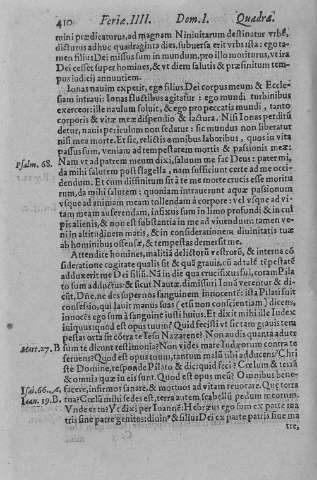 410 Feriæ. IIII. Dom. I. Quadra.
mini prædicaturus, ad magnam Niniuitarum destinatur vrbē,
dicturus adhuc quadraginta dies, subuersa erit vrbs ista: ego ta-
men filius Dei missus sum in mundum, pro illo moriturus, vt ira
Dei cesset super homines, & vt diem salutis & præfinitum tem-
pus iudicij annuntiem.
Ionas nauim expetit, ego filius Dei corpus meum & Eccle-
siam intraui: Ionas fluctibus agitatur: ego mundi turbinibus
exerceor: ille nautum soluit, & ego pro peccatis mundi, tanto
corporis & vitæ meæ dispendio & iactura. Nisi Ionas perditū
detur, nauis periculum non sedatur: sic mundus non liberatur
nisi mea morte. Et sic, relictis omnibus laboribus, quos in vita
passus sum, veniam ad tempestatem mortis & passionis meæ.
Psalm. 68. Nam vt ad patrem meum dixi, saluum me fac Deus: pater mi,
da mihi salutem post flagella, nam sufficiunt certe ad me occi-
dendum. Et cum diffinitum sit à te me morte crucis esse moritu
rum, da mihi salutem: quoniam intrauerunt aquæ passionum
vsque ad animam meam tollendam à corpore: vel vsque ad vi-
tam meam auferendam, infixus sum in limo profundi & in cul
pis alienis, & non est substantia in me ad viuendum: tamen ve-
ni in altitudinem maris, & in considerationem diuinitatis tuæ
ab hominibus offensæ, & tempestas demersit me.
Attendite homines, malitiâ delictorū vestrorū, & interna cō
sideratione cogitate qualis sit & quā grauis, cū ad talē tēpestatē
adduxerit me Dei filiū. Nā in die qua crucifixus sul, coram Pila
to sum adductus: & sicut Nautæ, dimissuri Ionā verentur & di-
cūt, Dne, ne des super nos sanguinem innocentē: ita Pilati fuit
confessio, qui lauit manus suas (etsi non conscientiam) dicens,
innocēs ego sum à sanguine iusti huius. Et dixit mihi ille Iudex
iniquus: quod est opus tuum? Quid fecisti vt sic tam grauis tem
pestas orta sit cōtra te Iesu Nazarene? Non audis quanta aduer
Mat. 27. B sum te dicunt testimonia? Non vides mare Iudæorum contra te
feruens? Quod est opus tuum, tantum malū tibi adducens? Chri
ste Domine, respondē Pilato & dic, quid feci? Cœlum & terrā
& omnia quæ in eis sunt. Quod est opus meū? Omnibus bene-
Isai. 66. A. facere, infirmos sanare, & mortuos ad vitam reuocare. Quæ terra
Ioan. 19. B. tua? Cœlū mihi sedes est, terra autem scabellū pedum meorum.
Vnde es tu? Vt dixi per Ioannē: Hebræus ego sum ex parte ma
tris sine patre genitus: diuinᵘ & filius Dei ex parte patris siue ma
tre,